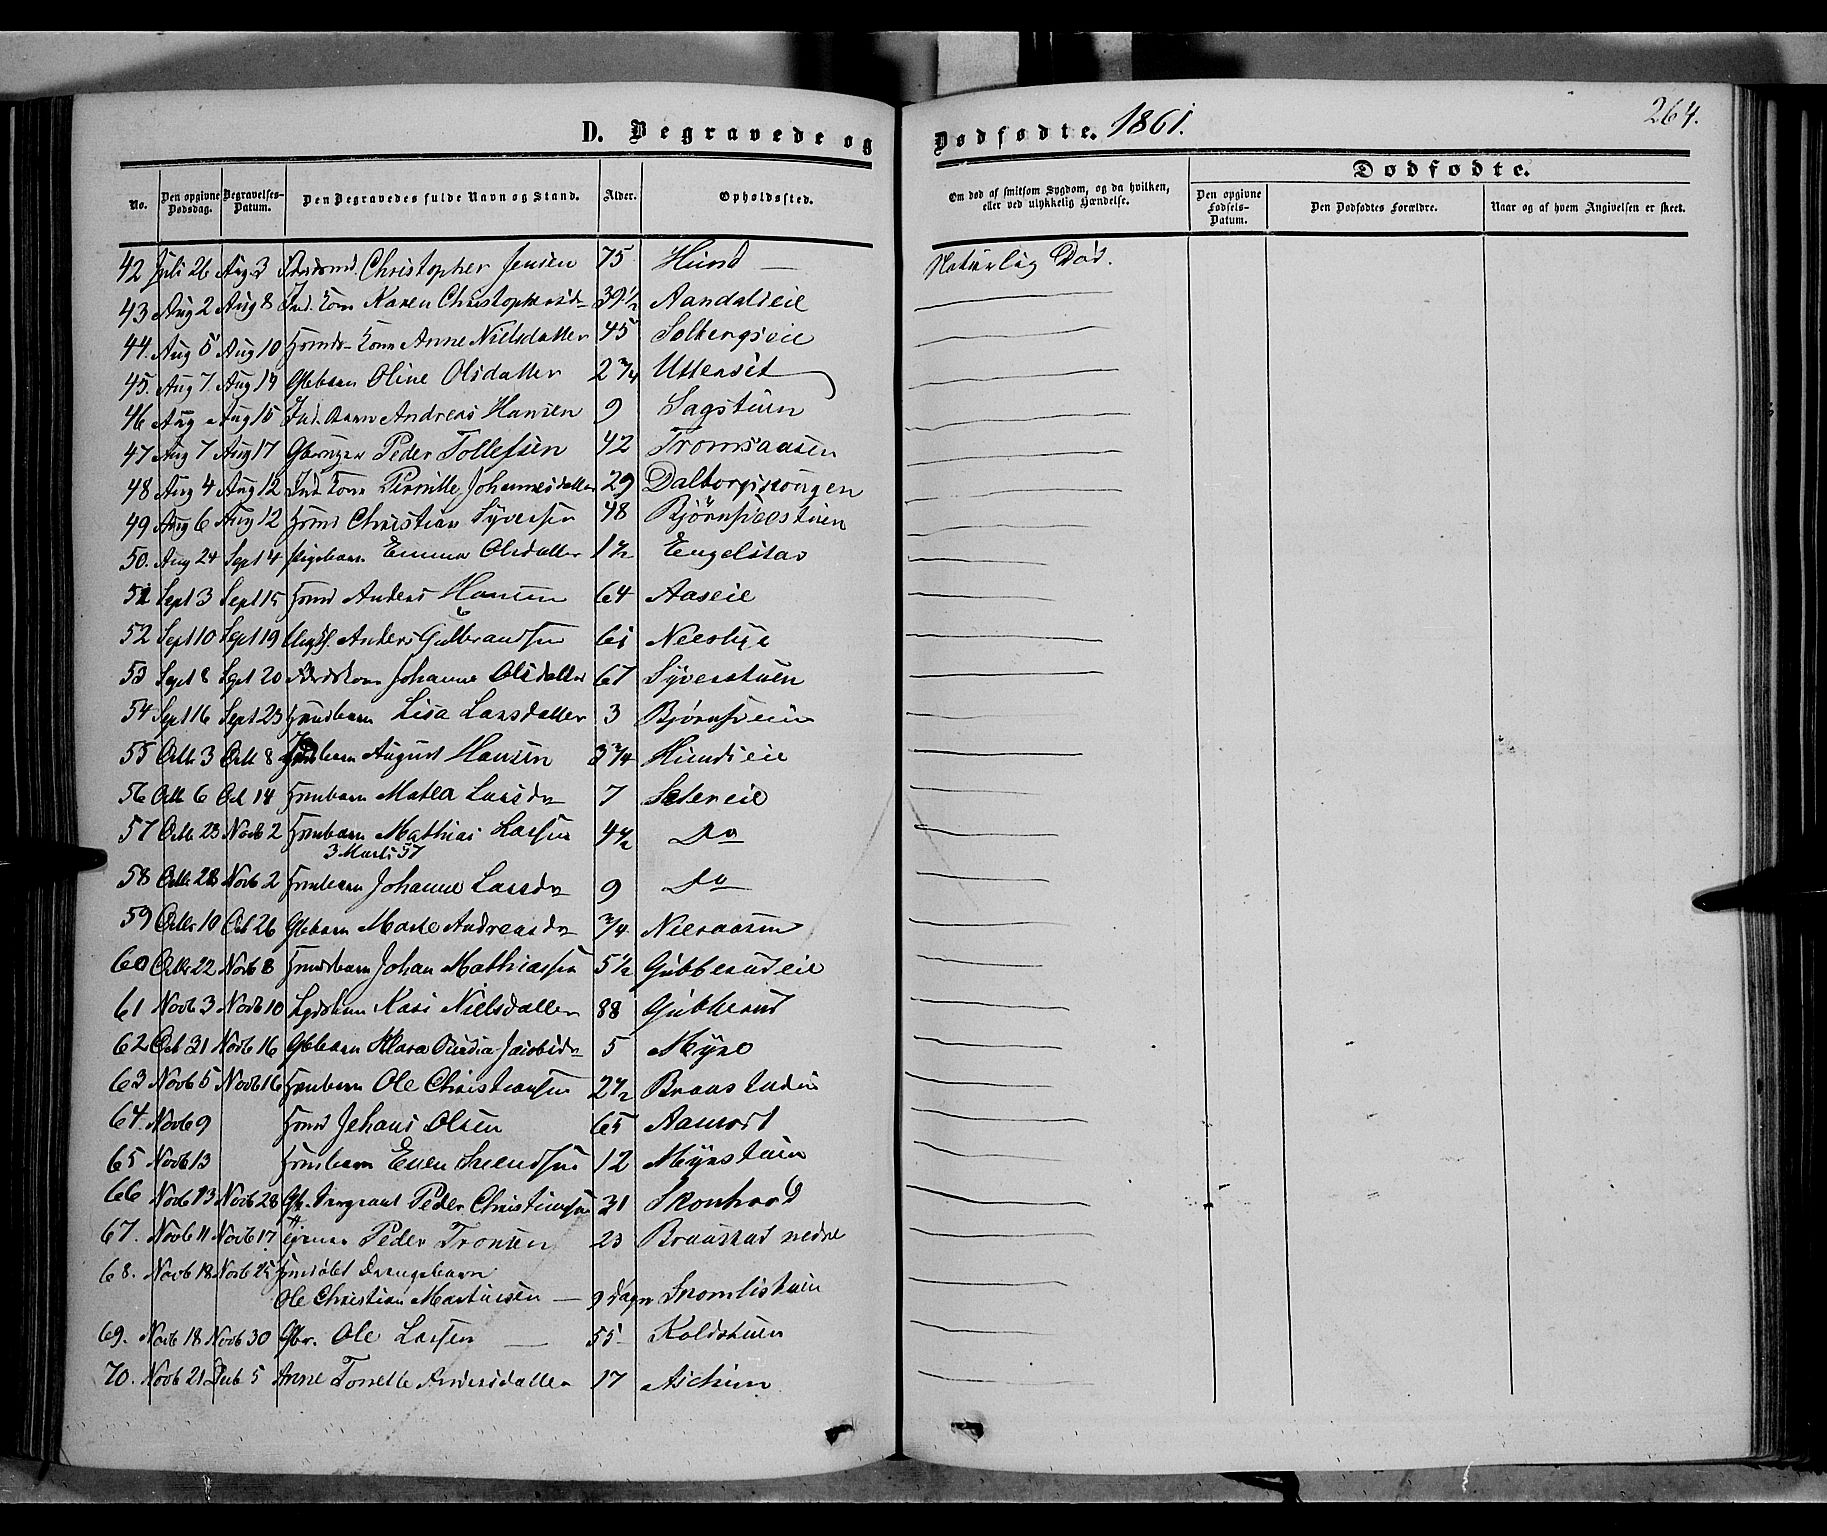 D. Begravede og Dødfødte. 1861. 264.
No. Den opgivne Dødsdag. Begravelses-Datum. Den Begravedes fulde Navn og Stand. Alder. Opholdssted. Om død af smitsom Sygdom, og da hvilken, eller ved ulykkelig Hændelse. Dødfødte. Den opgivne Fødsels-Datum. Den Dødfødtes Forældre. Naar og af hvem Angivelsen er skeet.
42 Juli 26 Aug 3 Christopher Jensen 75 Hund — Naturlig Død.
43 Aug 2 Aug 8 Ind. Kone Karen Christophersdr 39 1/2 Aandalseie
44. Aug 5 Aug 10 Hmds Kone Anne Nielsdatter 45 Solbergseie
45. Aug 7. Aug 14 Gbbarn Oline Olsdatter 2 3/4
46 Aug Aug 15 Ind. Barn Andreas Hansen 9 Sagstuen
47 Aug 7 Aug 17 Peder Tollefsen 42 Tromsaasen
48 Aug 4 Aug 12 Ind Kone Pernille Johannesdatter 29
49 Aug 6 Aug 12 Hmd Christian Syversen 48
50. Aug 24 Sept 4 Pigebarn Emma Olsdatter 1 1/2 Engelstad
51 Sept 3 Sept 15 Hmd Anders Hansen 64 Aaseie
52 Sept 10 Sept 19 Anders Gulbrandsen 61
53 Sept 8 Sept 20 Johanne Olsdatter 67 Syverstuen
54 Sept 16 Sept 23 Hmdbarn Lisa Larsdatter 3
55 Octb 3 Octb 8 barn August Hansen 3 3/4 Hundseie
56 Octb 6 Oct 14 Hmbarn Mathea Larsdr 7 Setereie
57 Octb 23 Novb 2 Hmbarn Mathias Larsen 4 1/2 Do
3 Marts 57
58 Octb 28 Novb 2 Hmbarn Johanne Larsdr 9 Do
59 Octbr 10 Oct 26 Gbbarn Marte Andreasdr 3/4
60 Octb 22 Novb 8 Hmdsbarn Johan Mathiassen 5 1/2 Gubberudeie
61 Novb 3 Novb 10 Kari Nielsdatter 88 Gubberud
62 Oct 31 Novb 16 Gbbarn Klara Jacobsdr 5 Myre
63 Novb 5 Novb 16 Hmbarn Ole Christiansen 2 1/2
64. Novb 9 Hmd Johans Olsen 65
65 Novb 13 Hmbarn Even Svendsen 12 Myrstuen
66 Novb 13 Novb 28 Peder Christiansen 31
67. Novb 11 Novb 17 Peder Tronsen 23 Braastad nedre
68. Novb 18 Novb 25 Drengebarn
Ole Christian Martinsen — 9 Dage
69. Novb 18 Novb 30 Gbr. Ole Larsen — 55 Koldstuen
70. Novb 21 Decb 5 Anne Tonette Andersdatter 17